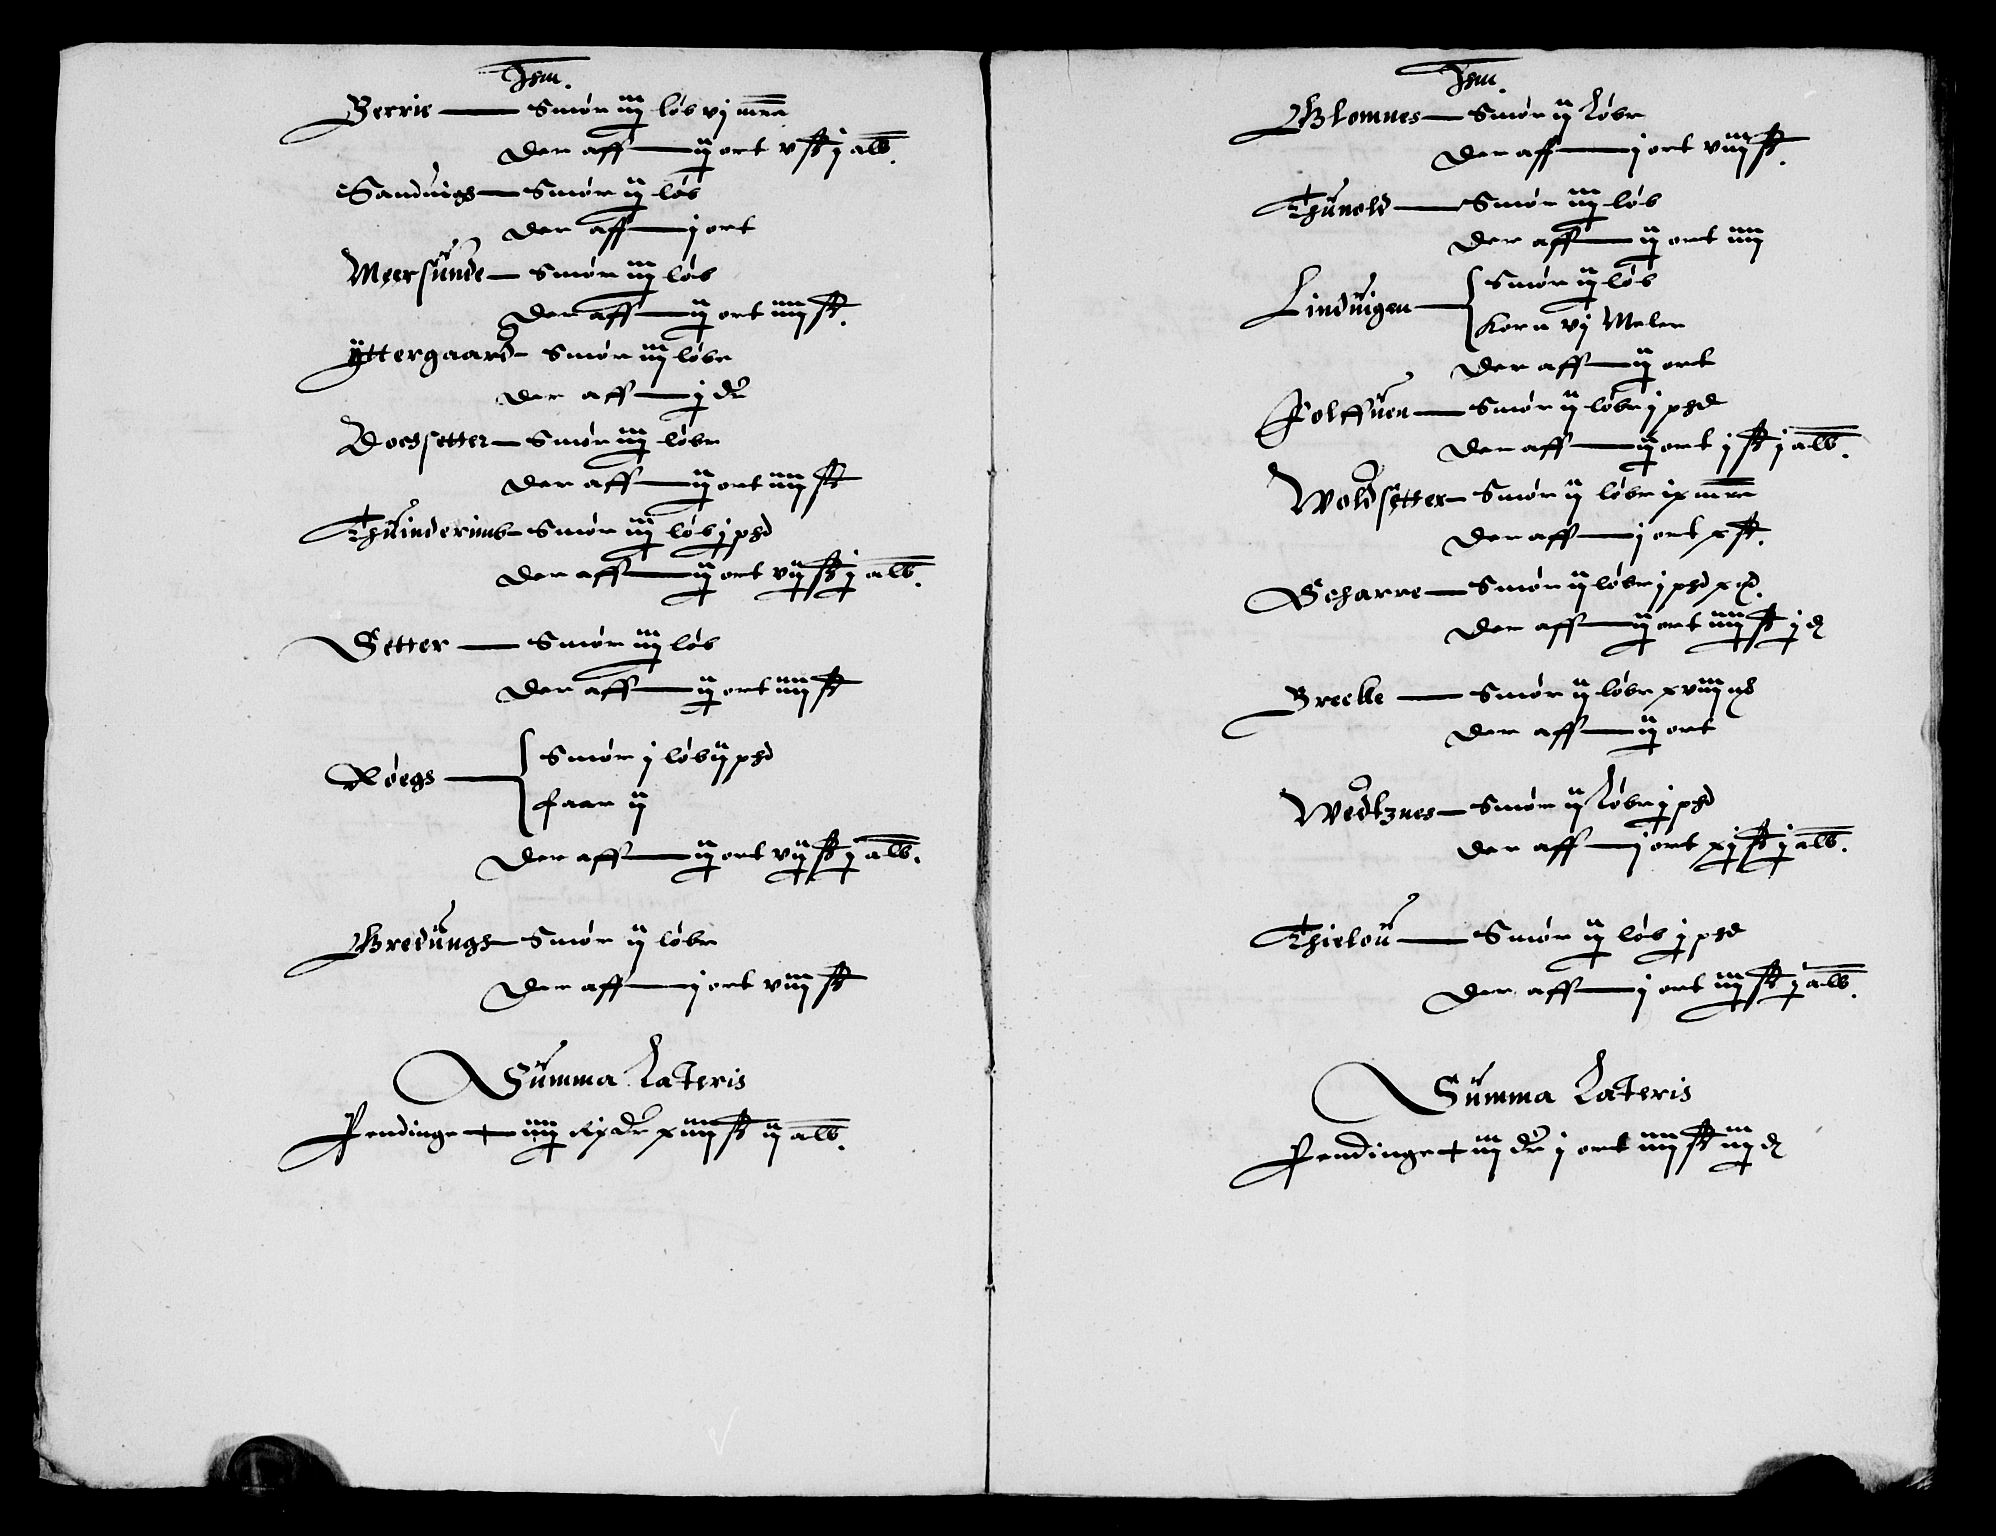 Ihm.
Berrie — Smør iij løb vj mrк
Der aff — ij ort v sk j alb.
Sanduigs — Smør ij løb
Der aff — j ort
Meersunde — Smør iij løb
Der aff — ij ort iiij sk.
Yttergaard — Smør iij løbe
Der aff — j dr
Doessetter — Smør iij løbe
Der aff — ij ort iiij sk
Thuinderims — Smør iij løb j psd
Der aff — ij ort vij sk j alb.
Setter — Smør iij løb
Der aff — ij ort iiij sk
Røegs — Smør j løb ij psd
Faar ij
Der aff — ij ort vij sk j alb.
Bredungs — Smør ij løbe
Der aff — j ort viij sk
Summa Lateris
Pendinge — iiij dr xiiij sk ij alb.
Ihm.
Blomnes — Smør ij Løbe
Der aff — j ort viij sk.
Thunold — Smør iij løb
Der aff — ij ort iiij
Linduigen — Smør ij løb
Korn vj Meler
Der aff — ij ort
Folffuen — Smør ij løbe j psd
Der aff — ij ort j sk j alb.
Woldsetter — Smør ij løbe ix mrк
Der aff — j ort x sk.
Scharre — Smør ij løbe j psd x
Der aff — ij ort iiij sk j d
Brecke — Smør ij løbe xviij
Der aff — ij ort
Wedtznes — Smør ij Løbe j psd
Der aff — j ort xj sk j alb.
Thielou — Smør ij løb j psd
Der aff — j ort iiij sk j alb.
Summa Lateris
Pendinge — iij dr j ort iiij sk iij d